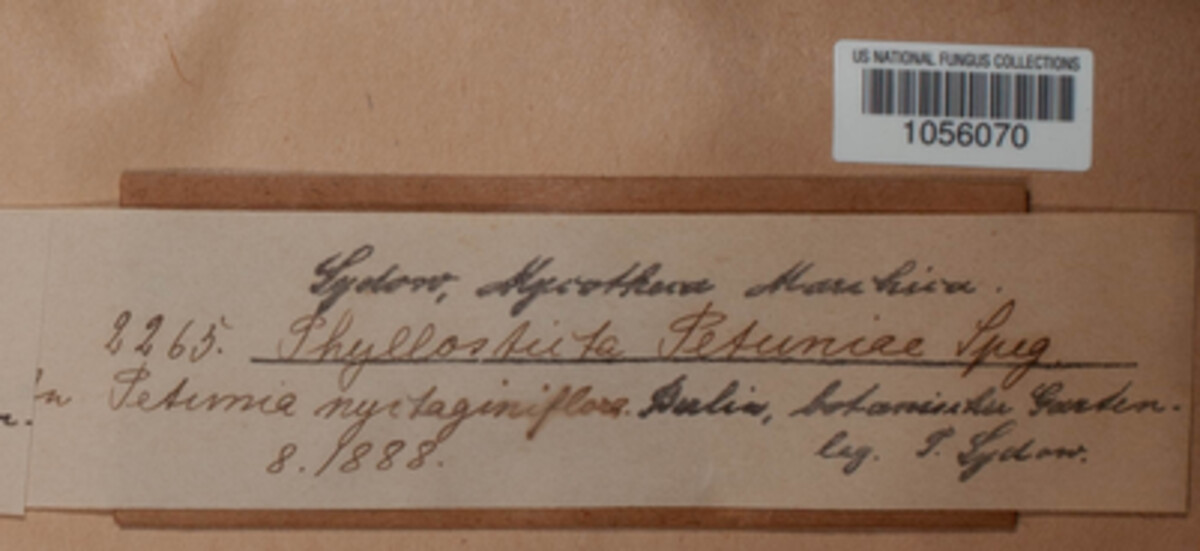 US NATIONAL FUNGUS COLLECTIONS
1056070
Sydow, Mycotheca Marchica.
2265. Phyllosticta Petuniae Speg.
In Petunia nyctaginiflora. Berlin, botanischer Garten.
8./1888.
leg. P. Sydow.